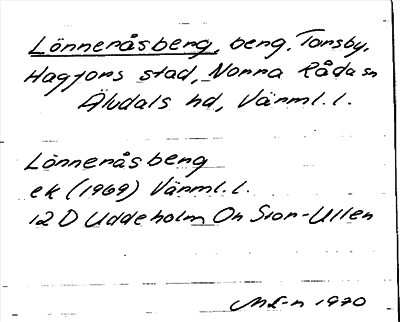 Lönneråsberg, berg, Torsby,
Hagfors stad, Norra Råda sn
Älvdals hd, Värml. l.
Lönneråsberg
ek (1969) Värml. l.
12 D Uddeholm On Stor-Ullen
1970